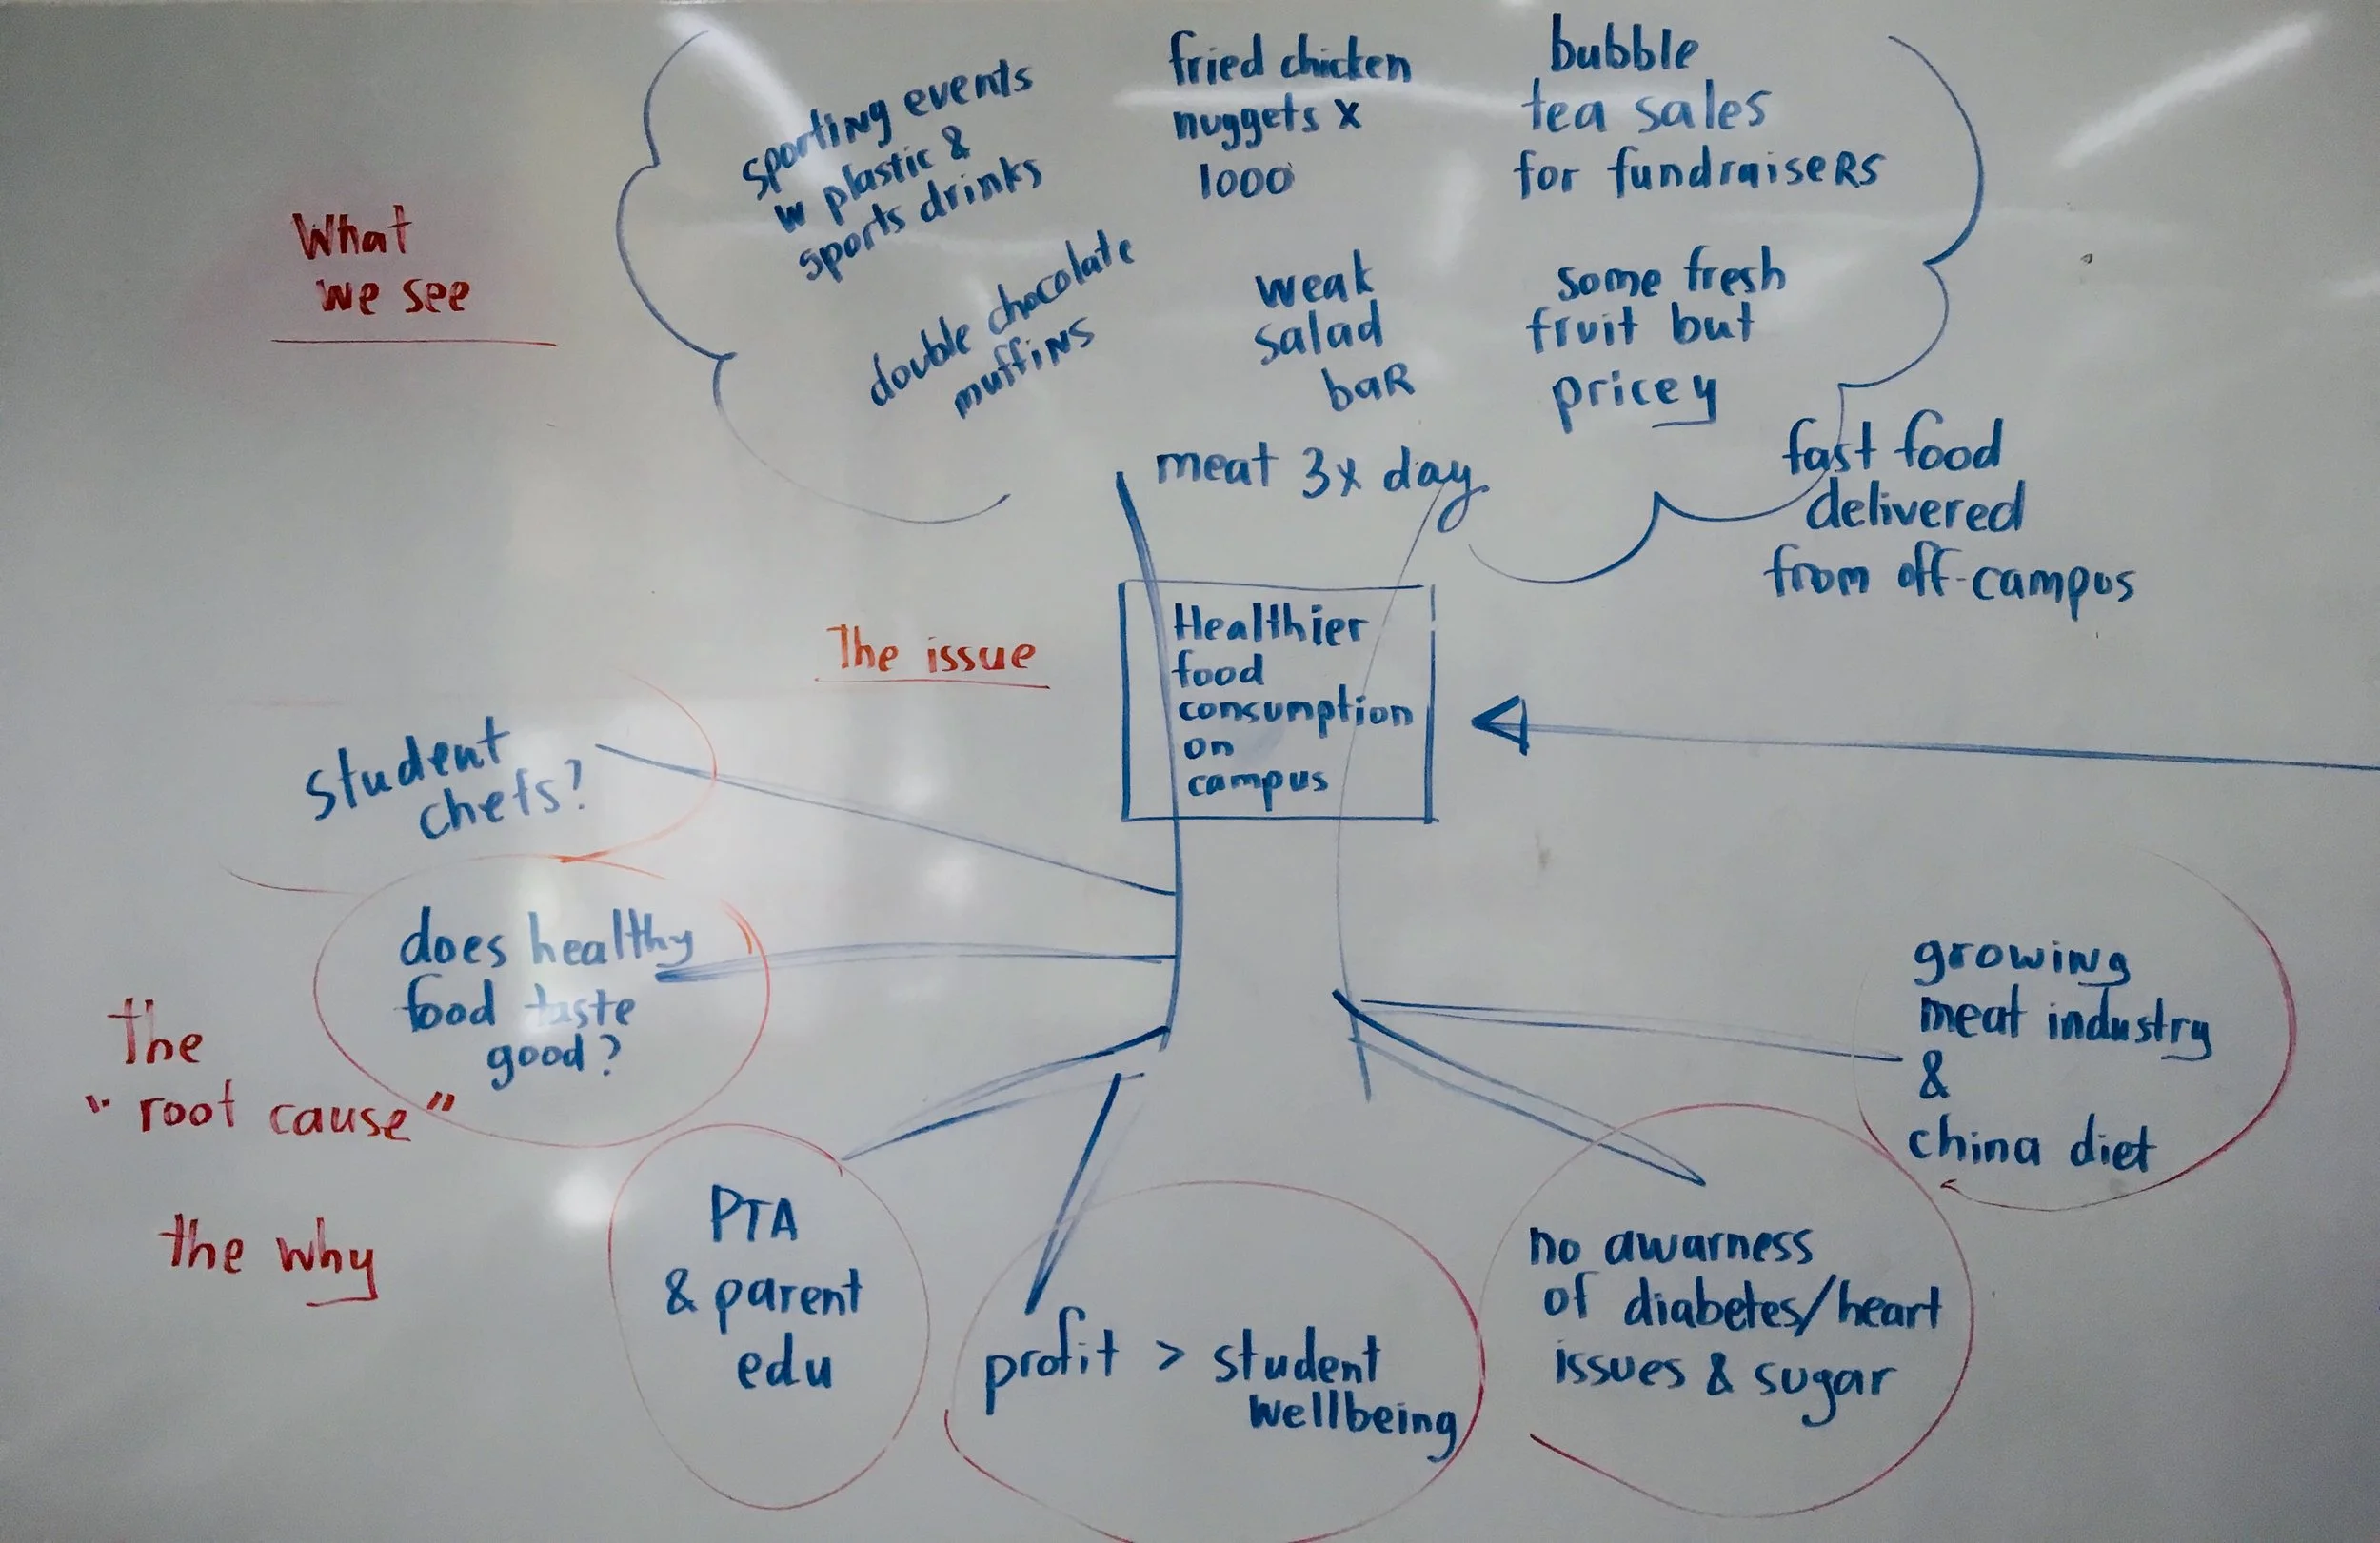 What
we see
sporting events
w plastic &
sports drinks
fried chicken
nuggets x
1000
bubble
tea sales
for fundraisers
double chocolate
muffins
weak
salad
bar
some fresh
fruit but
pricey
meat 3x day
fast food
delivered
from off-campus
The issue
Healthier
food
consumption
on
campus
student
chefs?
does healthy
food taste
good?
The
"root cause"
the why
PTA
& parent
edu
profit > student
wellbeing
no awarness
of diabetes/heart
issues & sugar
growing
meat industry
&
china diet